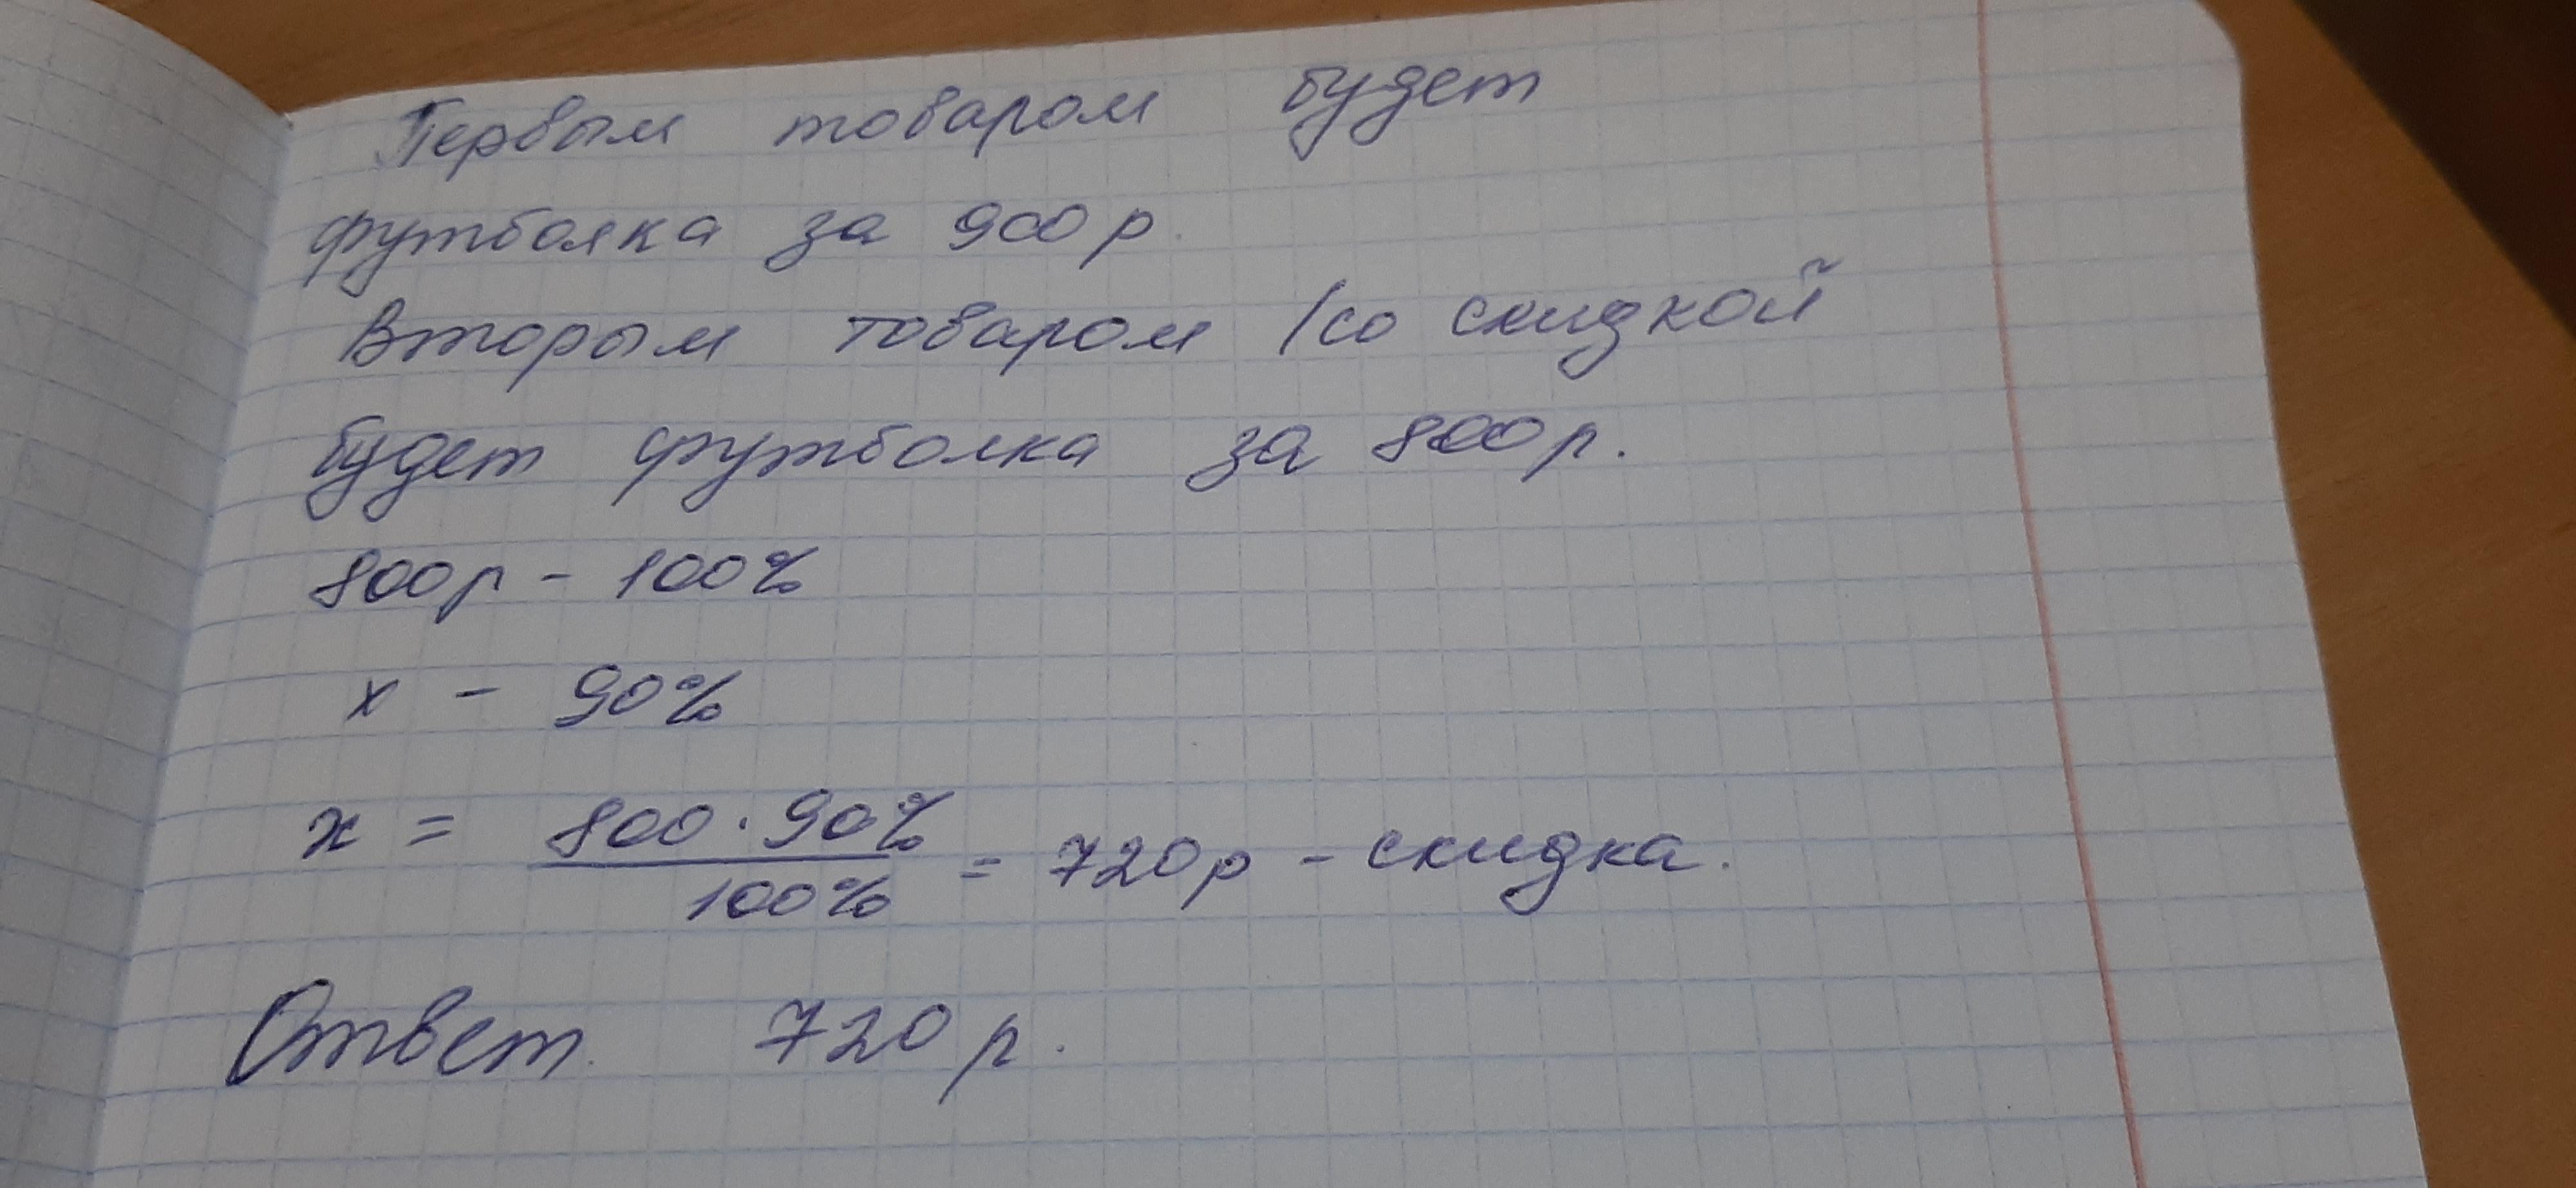 Первым товаром будет
футболка за 900 р.
Вторым товаром /со скидкой
будет футболка за 800 р.
800р - 100%
x - 90%
x = 800 · 90% / 100% = 720р - скидка.
Ответ. 720 р.